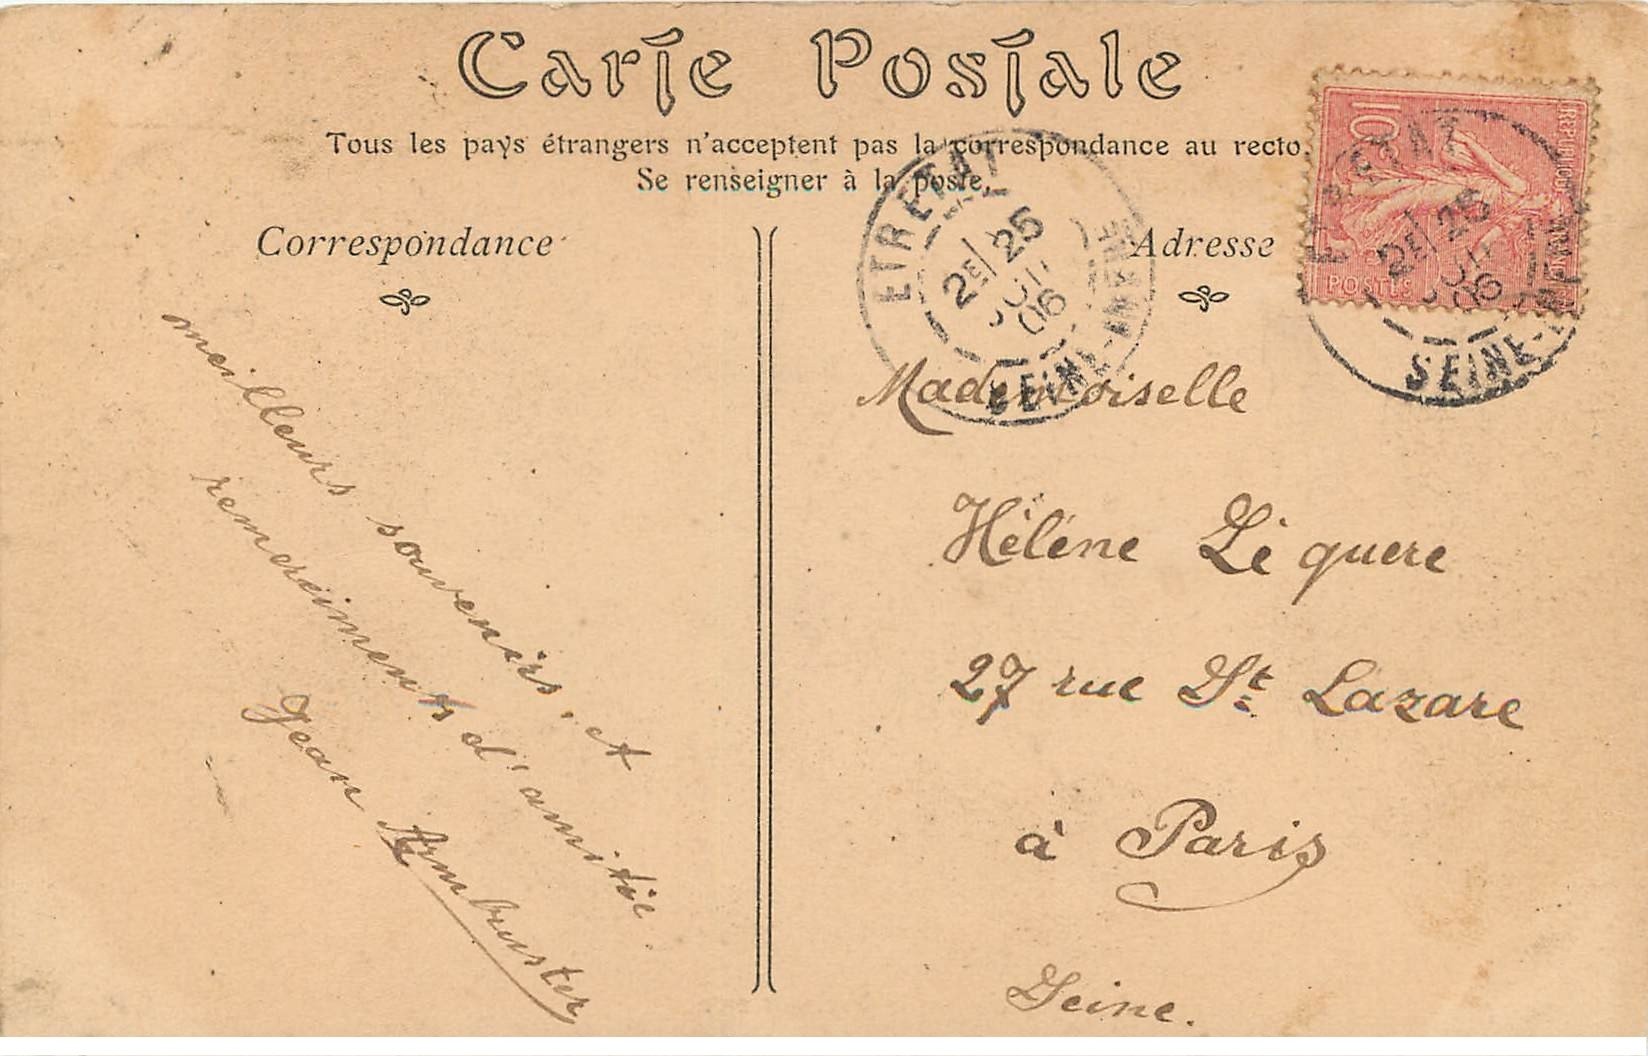 Carte Postale
Tous les pays étrangers n'acceptent pas la correspondance au recto.
Se renseigner à la poste.
Correspondance
meilleurs souvenirs, et
remerciments d'amitié.
Jean Armbruster
Adresse
Mademoiselle
Hélène Le quere
27 rue St Lazare
à Paris
Seine.
ETRETAT
2E 25
06
SEINE-INFRE
10
POSTES
ETRETAT
2E 25
06
SEINE-INFRE